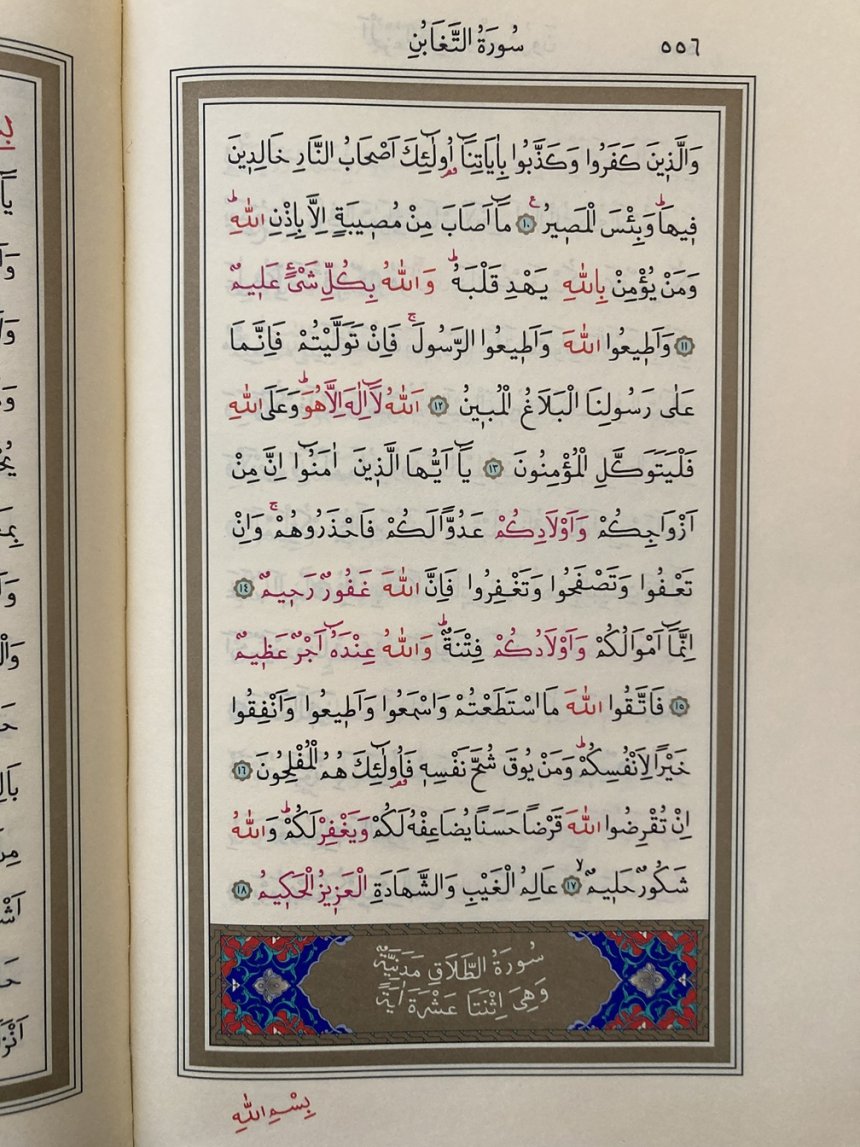 سُورَةُ التَّغَابُنِ
٥٥٦
وَالَّذ۪ينَ كَفَرُوا وَكَذَّبُوا بِاٰيَاتِنَٓا اُو۬لٰٓئِكَ اَصْحَابُ النَّارِ خَالِد۪ينَ
ف۪يهَاۜ وَبِئْسَ الْمَص۪يرُ۟ ﴿١٠﴾ مَٓا اَصَابَ مِنْ مُص۪يبَةٍ اِلَّا بِاِذْنِ اللّٰهِۜ
وَمَنْ يُؤْمِنْ بِاللّٰهِ يَهْدِ قَلْبَهُۜ وَاللّٰهُ بِكُلِّ شَيْءٍ عَل۪يمٌ
﴿١١﴾ وَاَط۪يعُوا اللّٰهَ وَاَط۪يعُوا الرَّسُولَۚ فَاِنْ تَوَلَّيْتُمْ فَاِنَّمَا
عَلٰى رَسُولِنَا الْبَلَاغُ الْمُب۪ينُ ﴿١٢﴾ اَللّٰهُ لَٓا اِلٰهَ اِلَّا هُوَۜ وَعَلَى اللّٰهِ
فَلْيَتَوَكَّلِ الْمُؤْمِنُونَ ﴿١٣﴾ يَٓا اَيُّهَا الَّذ۪ينَ اٰمَنُٓوا اِنَّ مِنْ
اَزْوَاجِكُمْ وَاَوْلَادِكُمْ عَدُوًّا لَكُمْ فَاحْذَرُوهُمْۚ وَاِنْ
تَعْفُوا وَتَصْفَحُوا وَتَغْفِرُوا فَاِنَّ اللّٰهَ غَفُورٌ رَح۪يمٌ ﴿١٤﴾
اِنَّمَٓا اَمْوَالُكُمْ وَاَوْلَادُكُمْ فِتْنَةٌۜ وَاللّٰهُ عِنْدَهُٓ اَجْرٌ عَظ۪يمٌ
﴿١٥﴾ فَاتَّقُوا اللّٰهَ مَا اسْتَطَعْتُمْ وَاسْمَعُوا وَاَط۪يعُوا وَاَنْفِقُوا
خَيْرًا لِاَنْفُسِكُمْۜ وَمَنْ يُوقَ شُحَّ نَفْسِه۪ فَاُو۬لٰٓئِكَ هُمُ الْمُفْلِحُونَ ﴿١٦﴾
اِنْ تُقْرِضُوا اللّٰهَ قَرْضًا حَسَنًا يُضَاعِفْهُ لَكُمْ وَيَغْفِرْ لَكُمْۜ وَاللّٰهُ
شَكُورٌ حَل۪يمٌۙ ﴿١٧﴾ عَالِمُ الْغَيْبِ وَالشَّهَادَةِ الْعَز۪يزُ الْحَك۪يمُ ﴿١٨﴾
سُورَةُ الطَّلَاقِ مَدَنِيَّةٌ
وَهِيَ اِثْنَتَا عَشْرَةَ اٰيَةً
بِسْمِ اللّٰهِ